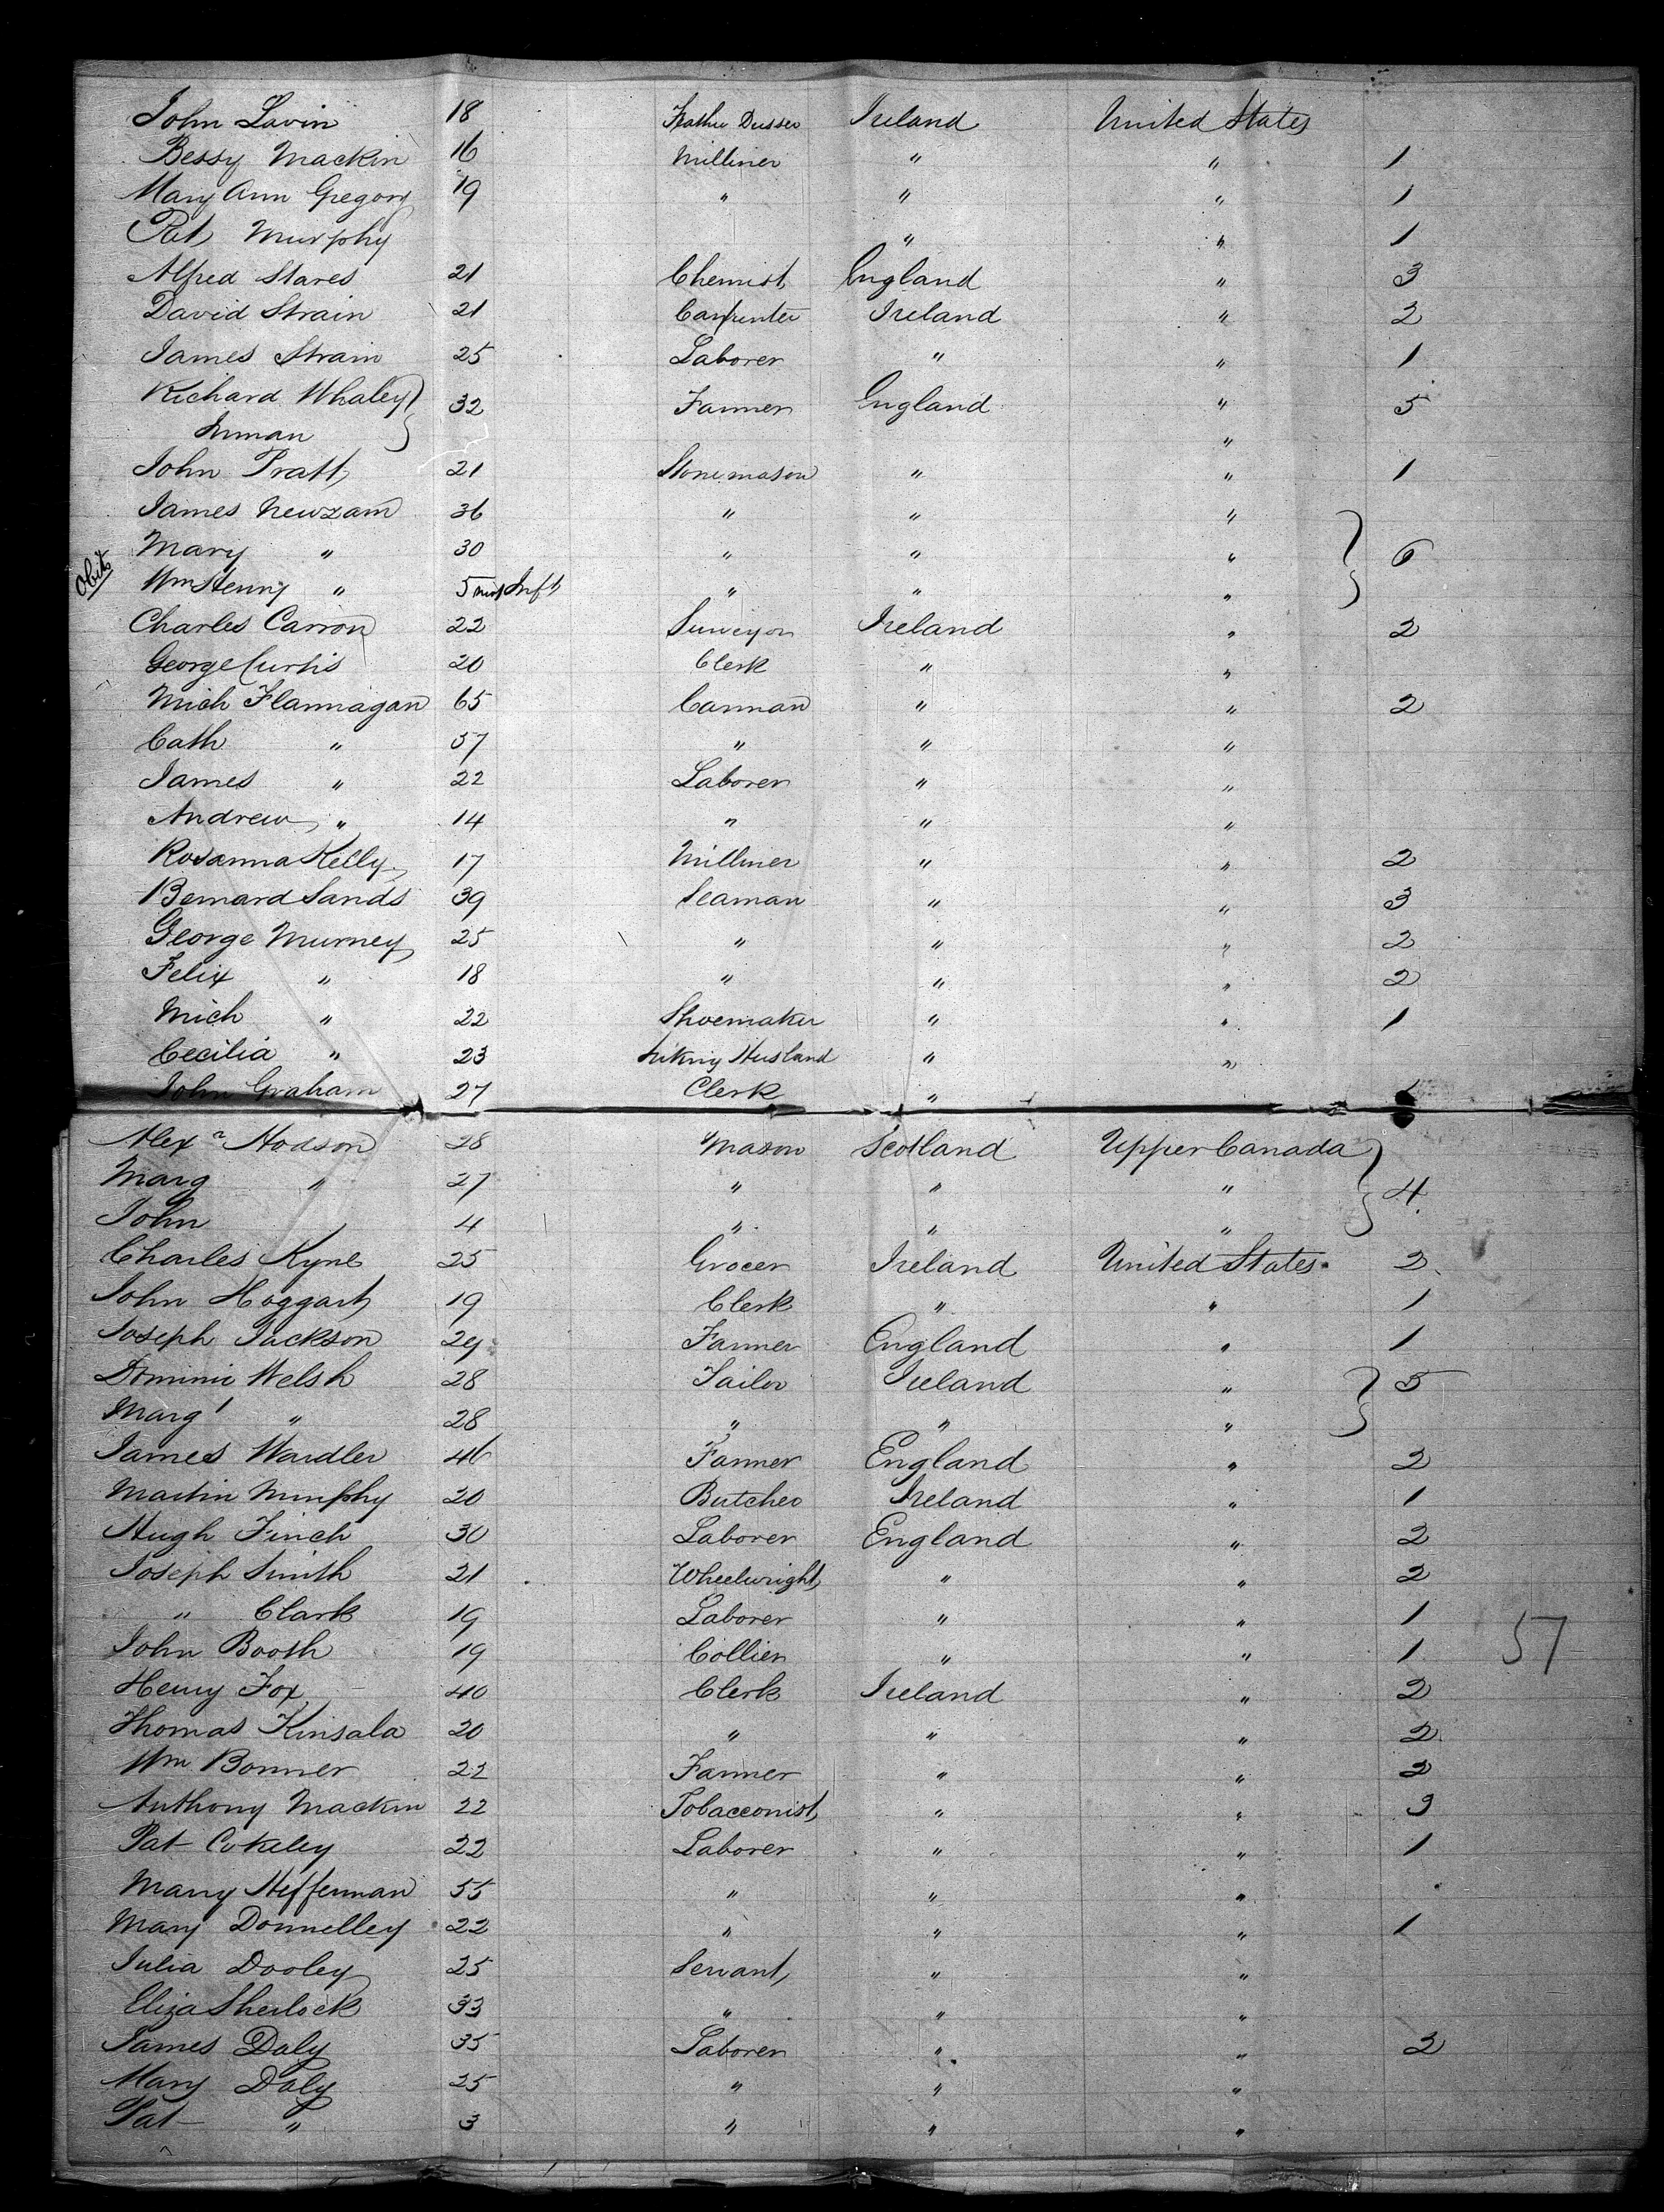 John Lavin 18 Feather Dresser Ireland United States
Bessy Mackin 16 Milliner " " 1
Mary Ann Gregory 19 " " " 1
Pat Murphy " " 1
Alfred Stares 21 Chemist England " 3
David Strain 21 Carpenter Ireland " 2
James Strain 25 Laborer " " 1
Richard Whaley } 32 Farmer England " 5
Inman "
John Pratt 21 Stonemason " " 1
James Newzam 36 " " "
Mary " 30 " " " } 6
Obits Wm Henry " 5 mos Inft " " "
Charles Carron 22 Surveyor Ireland " 2
George Curtis 20 Clerk " "
Mich Flannagan 65 Carman " " 2
Cath " 57 " " "
James " 22 Laborer " "
Andrew " 14 " " "
Rosanna Kelly 17 Milliner " " 2
Bernard Sands 39 Seaman " " 3
George Murney 25 " " " 2
Felix " 18 " " " 2
Mich " 22 Shoemaker " " 1
Cecilia " 23 Husband " "
John Graham 27 Clerk "
Alexr Hodson 28 Mason Scotland Upper Canada
Marg " 27 " " " } 4
John 4 " " "
Charles Kyne 25 Grocer Ireland United States 2
John Hoggart 19 Clerk " " 1
Joseph Jackson 29 Farmer England " 1
Dominic Welsh 28 Tailor Ireland " } 5
Margt " 28 " " "
James Wardler 46 Farmer England " 2
Martin Murphy 20 Butcher Ireland " 1
Hugh Finch 30 Laborer England " 2
Joseph Smith 21 Wheelwright " " 2
" Clark 19 Laborer " " 1
John Booth 19 Collier " " 1 57
Henry Fox 40 Clerk Ireland " 2
Thomas Kinsala 20 " " " 2
Wm Bonner 22 Farmer " " 2
Anthony Mackin 22 Tobacconist " " 3
Pat Cokeley 22 Laborer " " 1
Mary Heffernan 55 " " "
Mary Donnelley 22 " " " 1
Julia Dooley 25 Servant " "
Eliza Sherlock 33 " " "
James Daly 35 Laborer " " 2
Mary Daly 25 " " "
Pat " 3 " " "